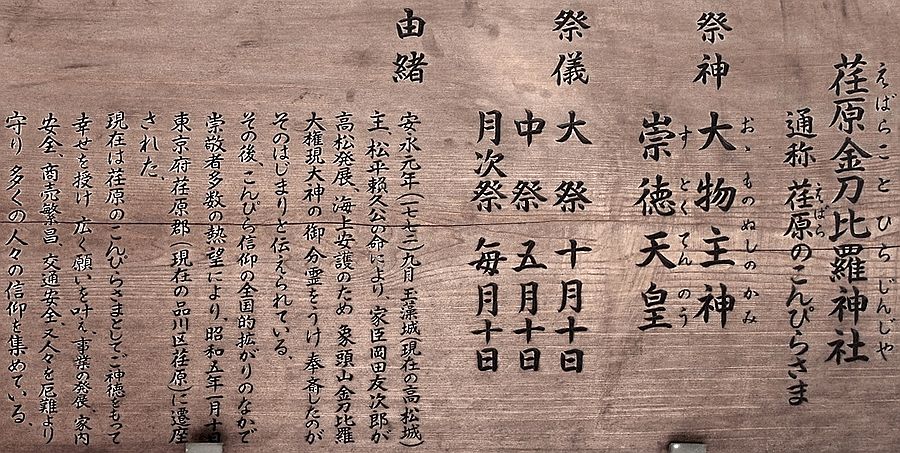 荏原金刀比羅神社
えばらことひらじんじゃ
通称 荏原のこんぴらさま
えばら
祭神 大物主神
おゝものぬしのかみ
崇徳天皇
すとくてんのう
祭儀 大祭 十月十日
中祭 五月十日
月次祭 毎月十日
由緒
安永元年(一七七二)九月 玉藻城(現在の高松城)
主、松平頼久公の命により、家臣岡田友次郎が
高松発展、海上安護のため 象頭山金刀比羅
大権現大神の 御分霊をうけ 奉斎したのが
そのはじまりと伝えられている。
その後、こんぴら信仰の全国的拡がりのなかで
崇敬者多数の熱望により、昭和五年一月十日
東京府荏原郡(現在の品川区荏原)に遷座
された。
現在は荏原のこんぴらさまとしてご神徳をもって
幸せを授け 広く願いを叶え、事業の発展、家内
安全、商売繁昌、交通安全、又人々を厄難より
守り 多くの人々の信仰を集めている。